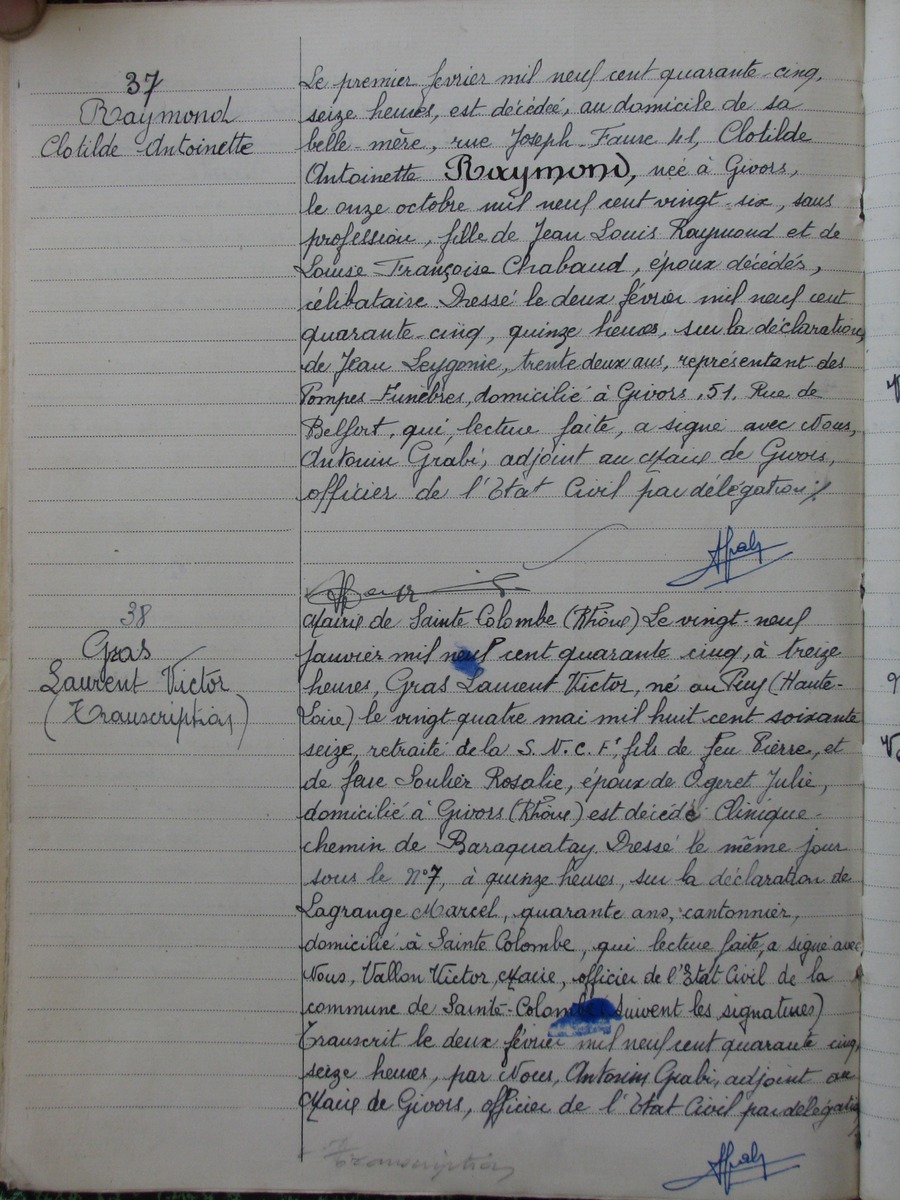 37
Raymond
Clotilde Antoinette
Le premier février mil neuf cent quarante cinq,
seize heures, est décédée, au domicile de sa
belle-mère, rue Joseph-Faure 41, Clotilde
Antoinette Raymond, née à Givors,
le onze octobre mil neuf cent vingt-six, sans
profession, fille de Jean Louis Raymond et de
Louise Françoise Chabaud, époux décédés,
célibataire. Dressé le deux février mil neuf cent
quarante-cinq, quinze heures, sur la déclaration,
de Jean Leygonie, trente deux ans, représentant des
Pompes Funèbres, domicilié à Givors, 51, Rue de
Belfort, qui, lecture faite, a signé avec Nous,
Antonin Grabi, adjoint au Maire de Givors,
officier de l'Etat Civil par délégation ;/.
38
Gras
Laurent Victor
(Transcription)
Mairie de Sainte Colombe (Rhône) Le vingt-neuf
janvier mil neuf cent quarante cinq, à treize
heures, Gras Laurent Victor, né au Puy (Haute-
Loire) le vingt quatre mai mil huit cent soixante
seize, retraité de la S.N.C.F., fils de feu Pierre, et
de feue Soulier Rosalie, époux de Ogeret Julie,
domicilié à Givors (Rhône) est décédé Clinique
chemin de Baraquatay. Dressé le même jour
sous le N°7, à quinze heures, sur la déclaration de
Lagrange Marcel, quarante ans, cantonnier,
domicilié à Sainte Colombe, qui lecture faite, a signé avec
Nous, Vallon Victor, Maire, officier de l'Etat Civil de la
commune de Sainte-Colombe (suivent les signatures)
Transcrit le deux février mil neuf cent quarante cinq,
seize heures, par Nous, Antonin Grabi, adjoint au
Maire de Givors, officier de l'Etat Civil par délégation
Transcription